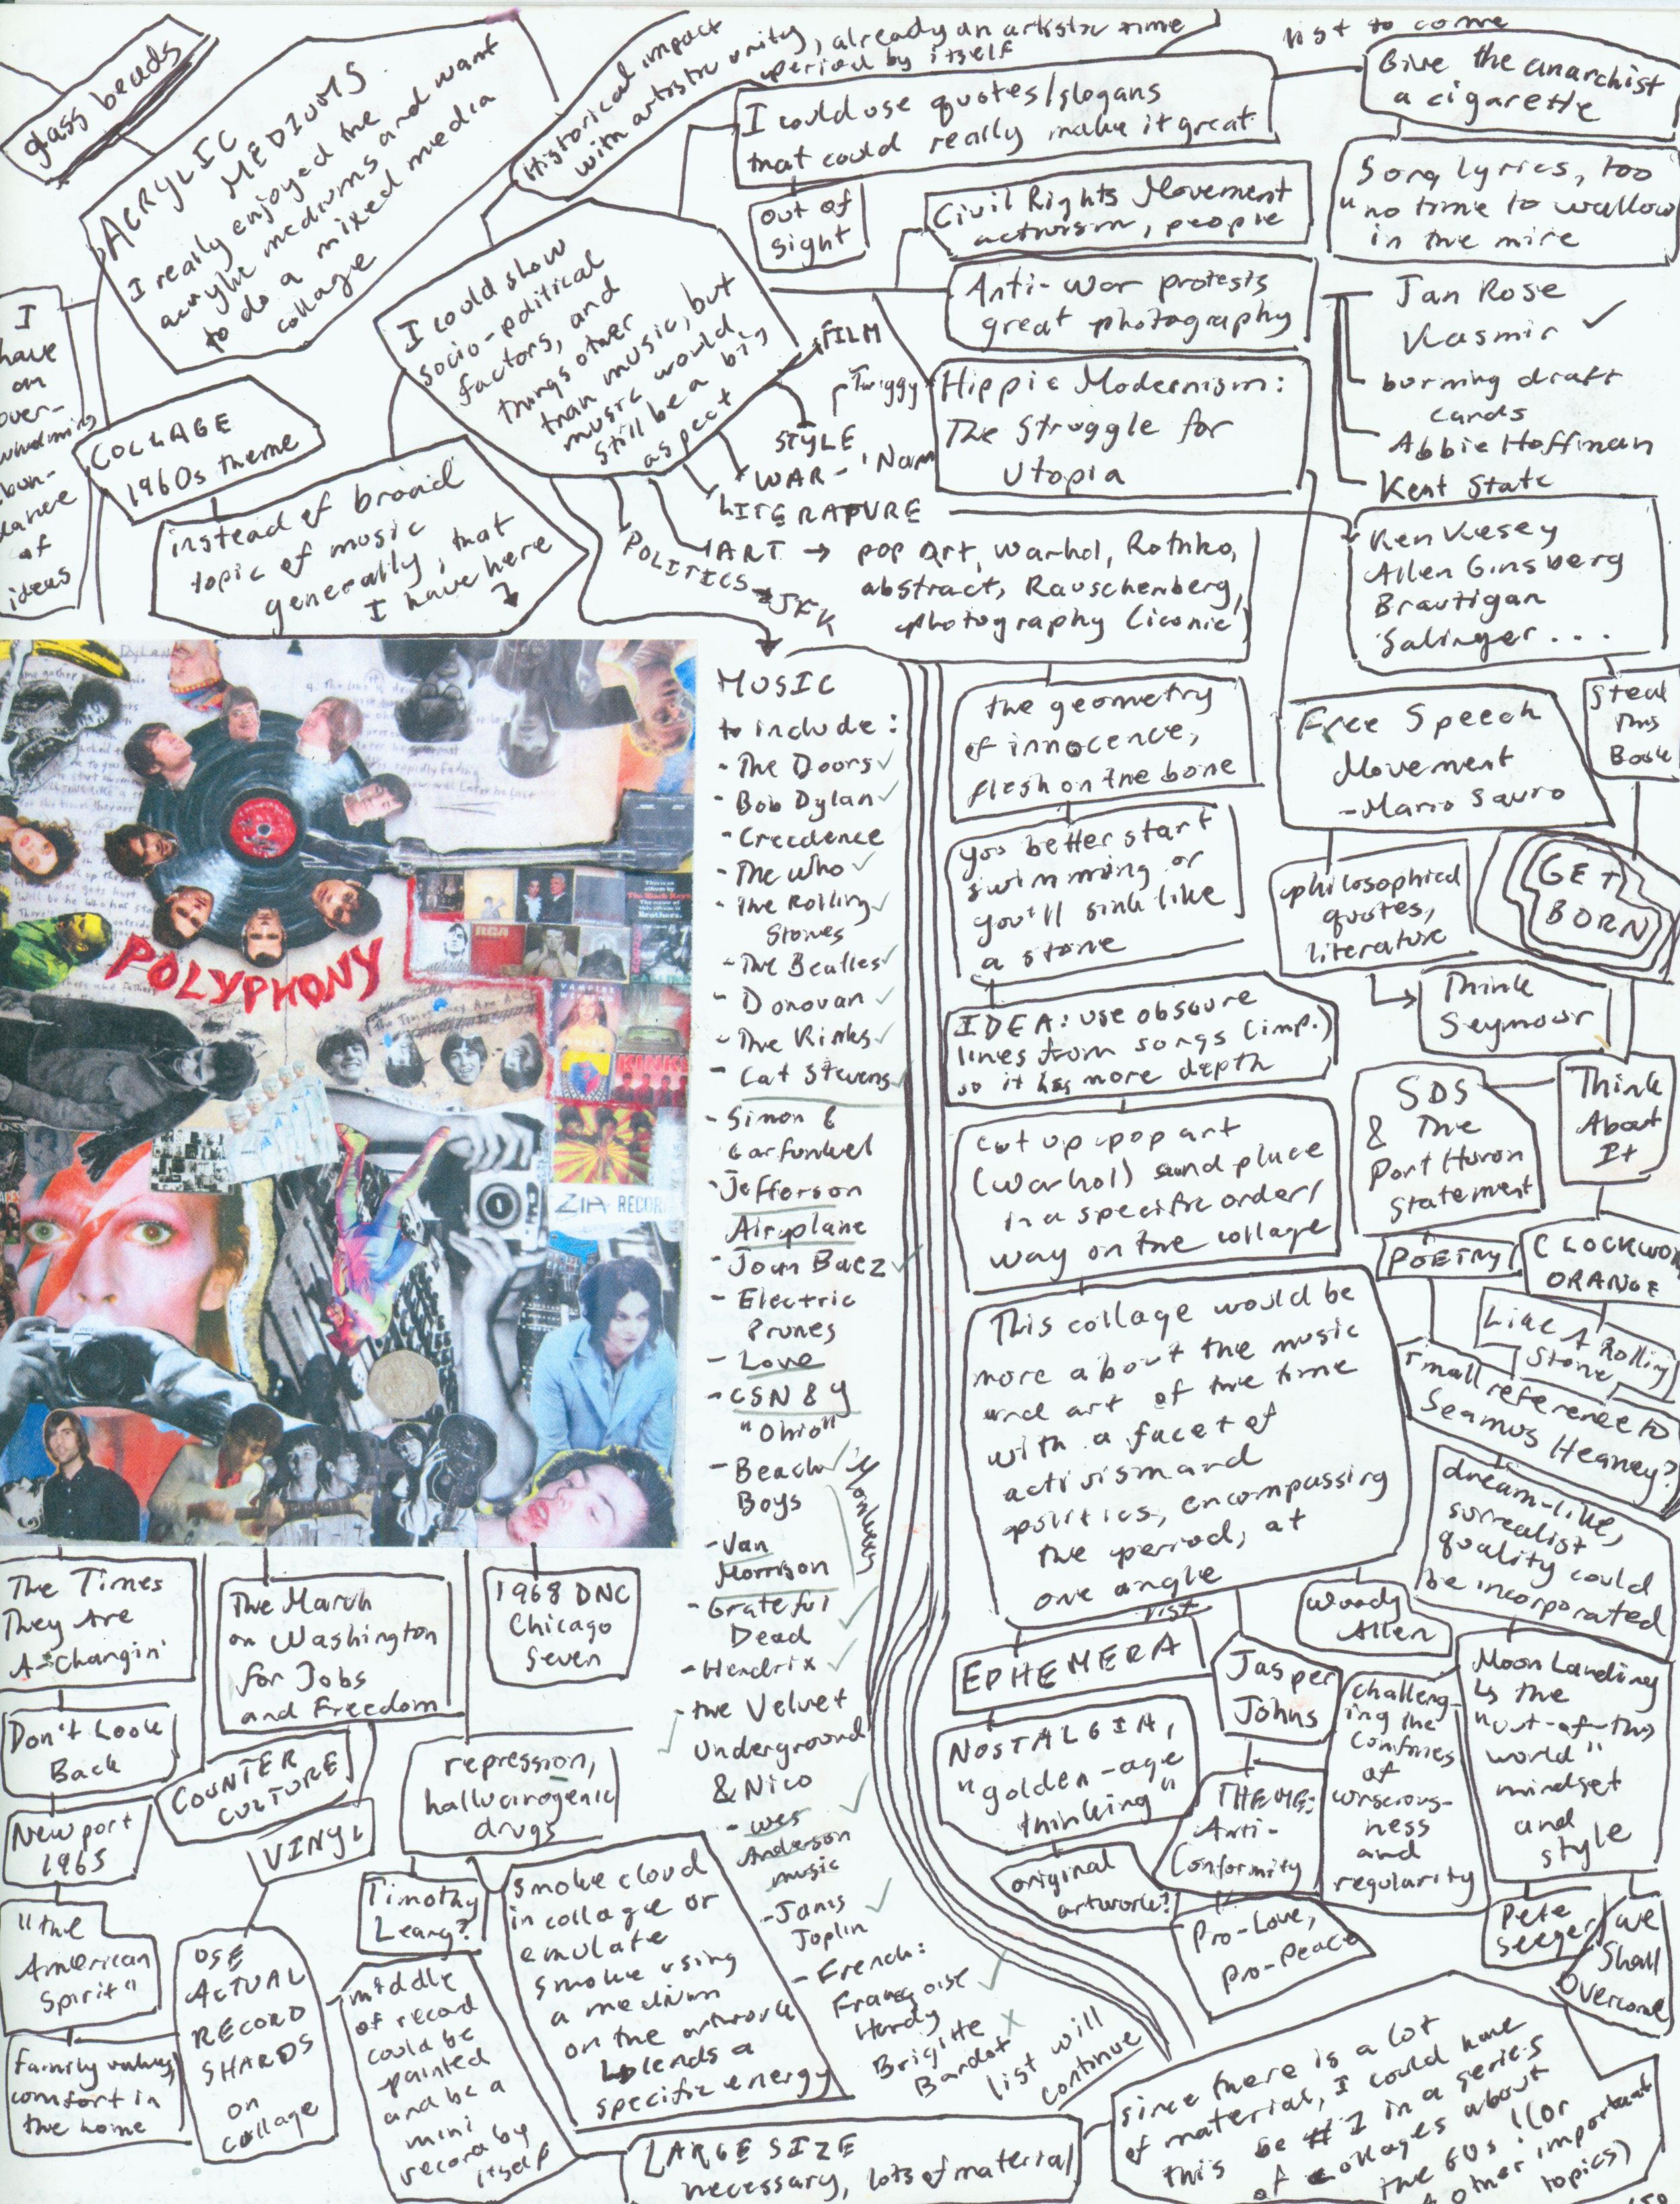 glass beads
ACRYLIC
MEDIUMS
I really enjoyed the
acrylic mediums and want
to do a mixed media
collage
Historical impact
with artistic unity, already an artistic time
period by itself
list to come
I could use quotes/slogans
that could really make it great
Give the anarchist
a cigarette
out of
sight
Civil Rights Movement
activism, people
Song lyrics, too
"no time to wallow
in the mire
I
have
an
over-
whelming
abun-
dance
of
ideas
COLLAGE
1960s theme
instead of broad
topic of music
generally, that
I have here
I could show
socio-political
factors, and
things other
than music, but
music would
still be a big
aspect
Anti-war protests
great photography
Jan Rose
Kasmir ✓
burning draft
cards
Abbie Hoffman
Kent State
FILM
Twiggy
STYLE
WAR - 'Nam
LITERATURE
ART → pop art, Warhol, Rothko,
abstract, Rauschenberg,
photography (iconic)
POLITICS → JFK
Hippie Modernism:
The Struggle for
Utopia
Ken Kesey
Allen Ginsberg
Brautigan
Salinger...
Steal
This
Book
Free Speech
Movement
-Mario Savro
philosophical
quotes,
literature
GET
BORN
Think
Seymour
SDS
& The
Port Huron
Statement
Think
About
It
POETRY
CLOCKWO
ORANGE
Like A Rolling
Stone
small reference to
Seamus Heaney?
dream-like,
surrealist
quality could
be incorporated
MUSIC
to include:
- The Doors ✓
- Bob Dylan ✓
- Creedence
- The Who ✓
- The Rolling ✓
Stones
- The Beatles ✓
- Donovan ✓
- The Kinks ✓
- Cat Stevens ✓
- Simon &
Garfunkel
- Jefferson
Airplane
- Joan Baez ✓
- Electric
Prunes
- Love
- CSN & Y
"Ohio"
- Beach ✓
Boys
Monkees
- Van
Morrison
- Grateful
Dead ✓
- Hendrix ✓
- the Velvet
Underground
& Nico ✓
- Wes ✓
Anderson
music
- Janis ✓
Joplin
- French:
Françoise ✓
Hardy
Brigitte X
Bardot
list will
continue
the geometry
of innocence,
flesh on the bone
you better start
swimming or
you'll sink like
a stone
IDEA: use obscure
lines from songs (imp.)
so it has more depth
cut up pop art
(Warhol) and place
in a specific order/
way on the collage
This collage would be
more about the music
and art of the time
with a facet of
activism and
politics, encompassing
the period, at
one angle
EPHEMERA
list
NOSTALGIA,
"golden-age
thinking"
original
artwork?
Jasper
Johns
Woody
Allen
THEME:
Anti-
Conformity
Pro-Love,
Pro-Peace
challeng-
ing the
confines
of
conscious-
ness
and
regularity
Moon Landing
↳ the
"out-of-this
world"
mindset
and
style
Pete
Seeger
We
Shall
Overcome
POLYPHONY
RCA
VAMPIRE
WEEKEND
KINKS
ZIA RECOR
The Times
They Are
A-Changin'
Don't Look
Back
Newport
1965
"the
American
Spirit"
family values,
comfort in
the home
The March
on Washington
for Jobs
and Freedom
COUNTER
CULTURE
VINYL
USE
ACTUAL
RECORD
SHARDS
on
collage
1968 DNC
Chicago
Seven
repression,
hallucinogenic
drugs
Timothy
Leary?
middle
of record
could be
painted
and be a
mini
record by
itself
smoke cloud
in collage or
emulate
smoke using
a medium
on the artwork
↳ lends a
specific energy
LARGE SIZE
necessary, lots of material
since there is a lot
of material, I could have
this be #1 in a series
of collages about
the 60s! (or
other important
topics)